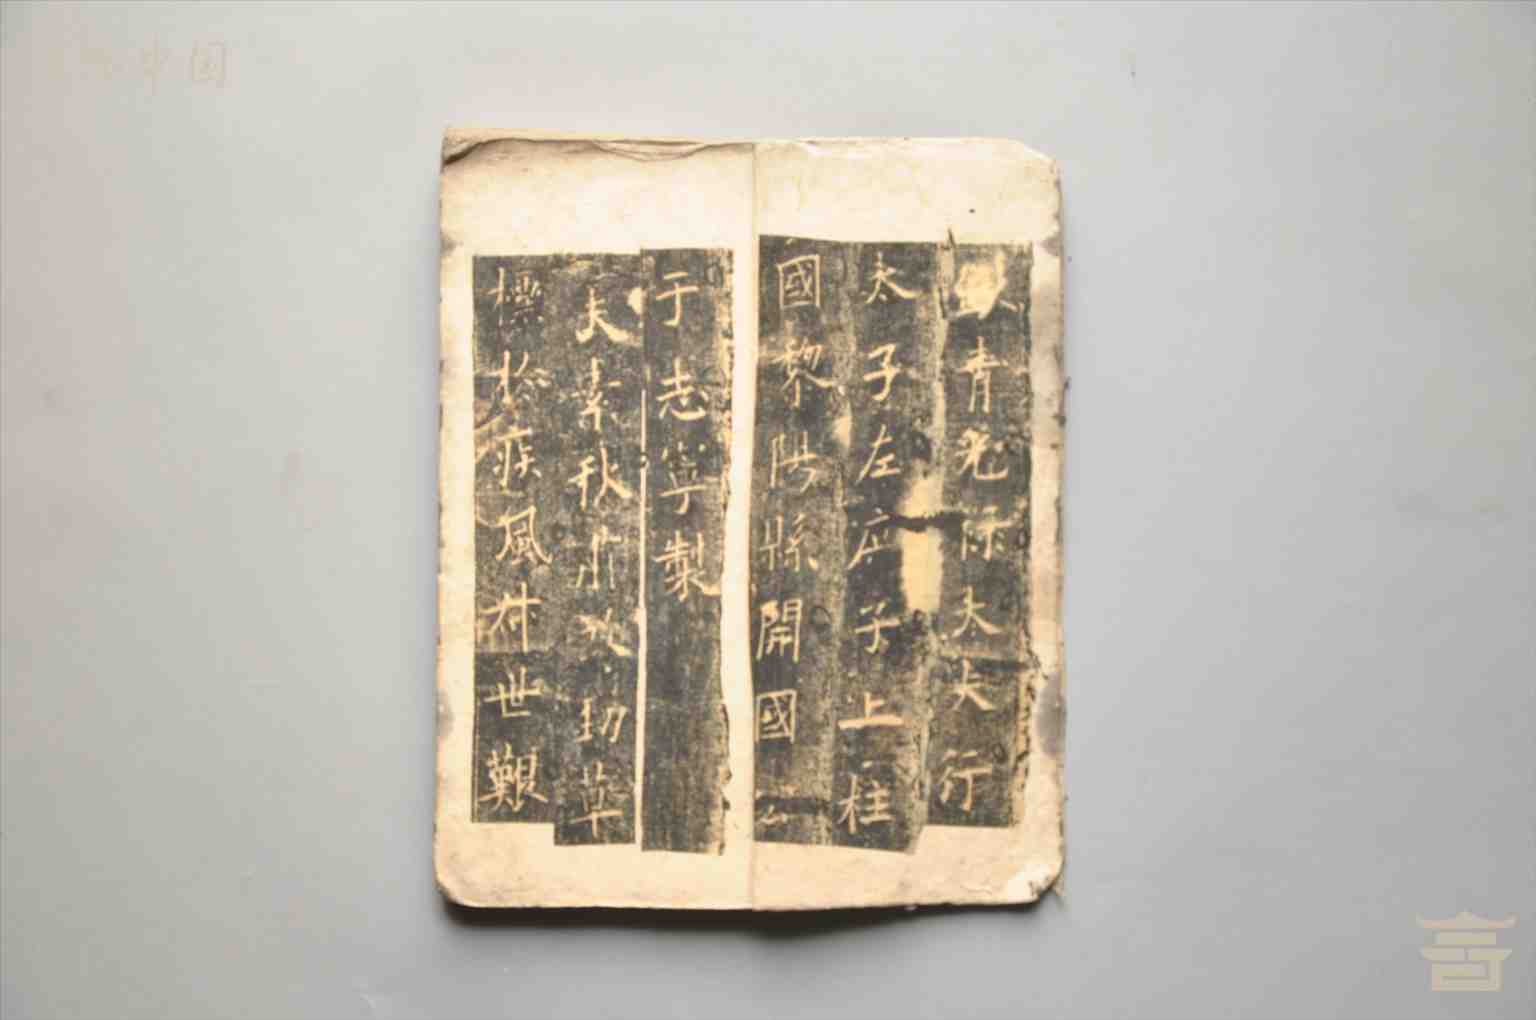 青光祿大夫行
太子左庶子上柱
國黎陽縣開國公
于志寧製
夫素秋肅煞勁草
標於疾風叔世艱
中国